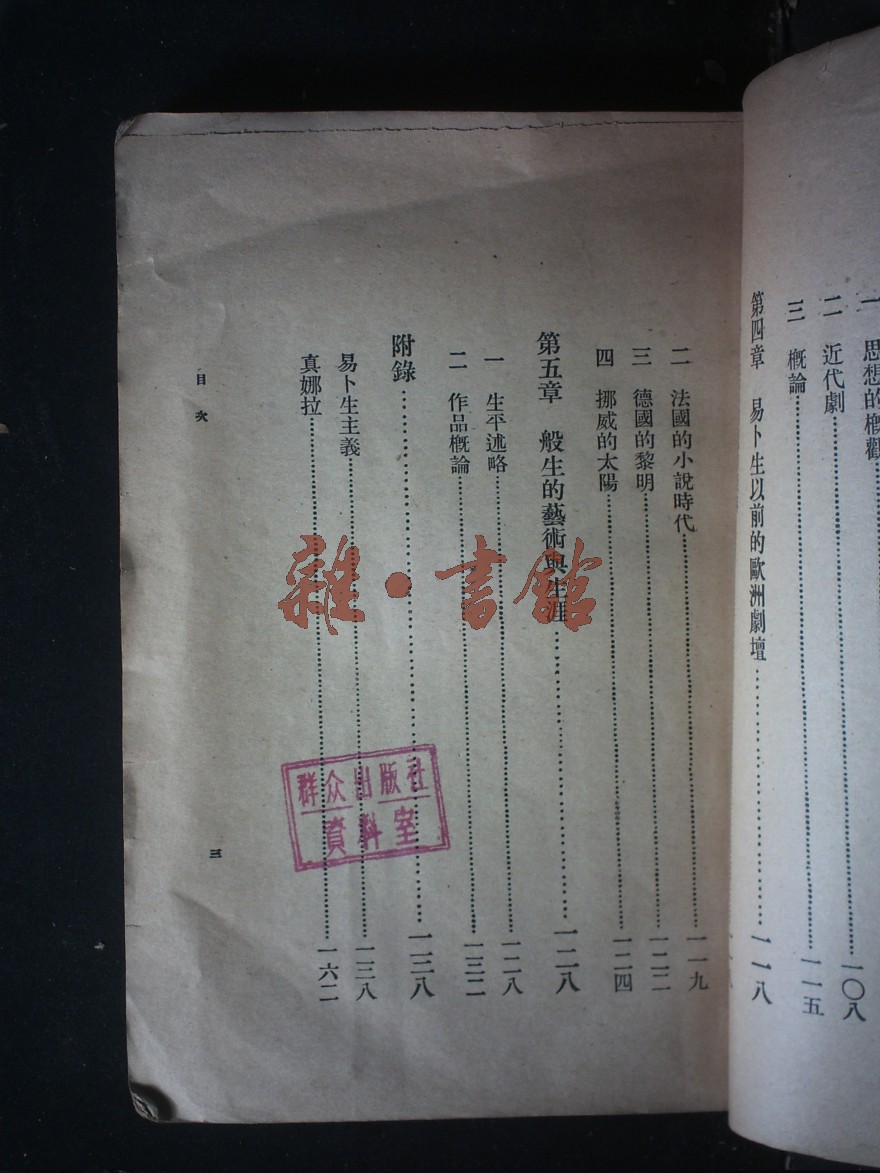 一 思想的概觀
二 近代劇……一〇八
三 概論……一一五
第四章 易卜生以前的歐洲劇壇……一一八
二 法國的小說時代……一一九
三 德國的黎明……一二二
四 挪威的太陽……一二四
第五章 般生的藝術與生涯……一二八
一 生平述略……一二八
二 作品概論……一三二
附錄……一三八
易卜生主義……一三八
真娜拉……一六二
目次 三
雜·書館
群众出版社
資料室